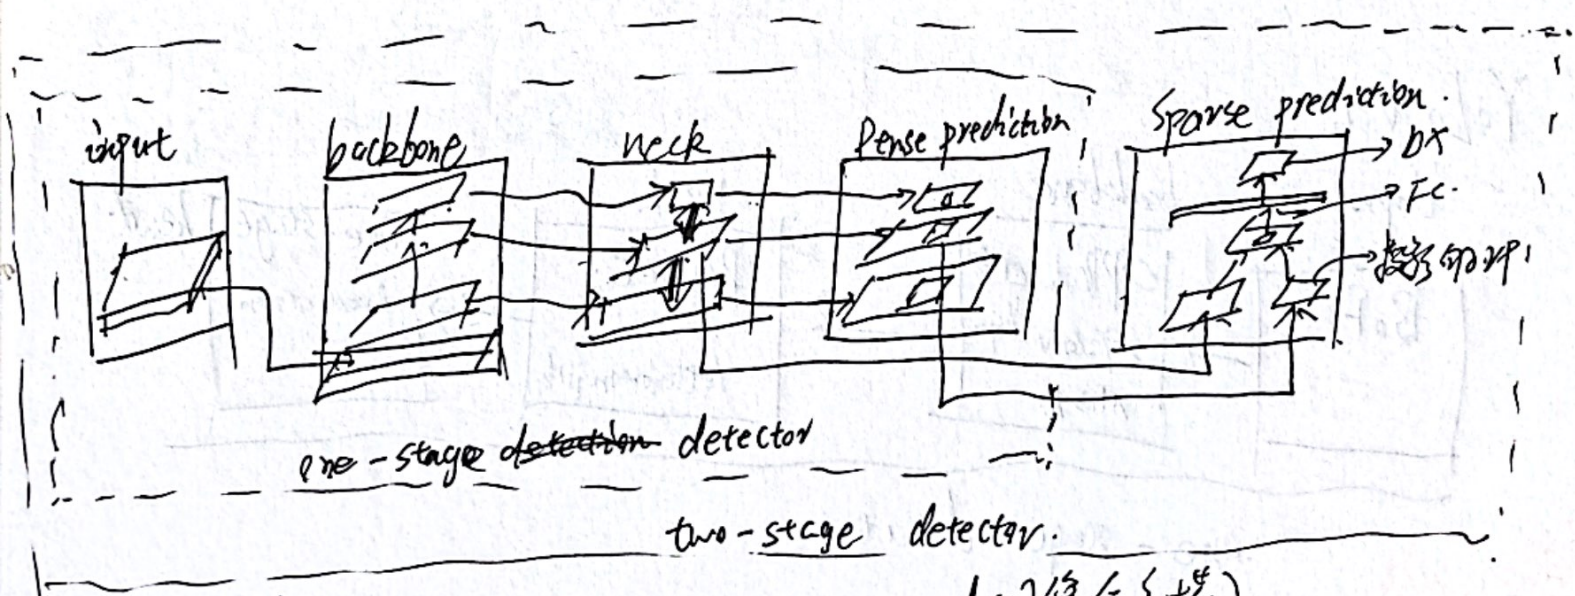 input
backbone
neck
Dense prediction
Sparse prediction.
FC.
one-stage detection detector
two-stage detector.